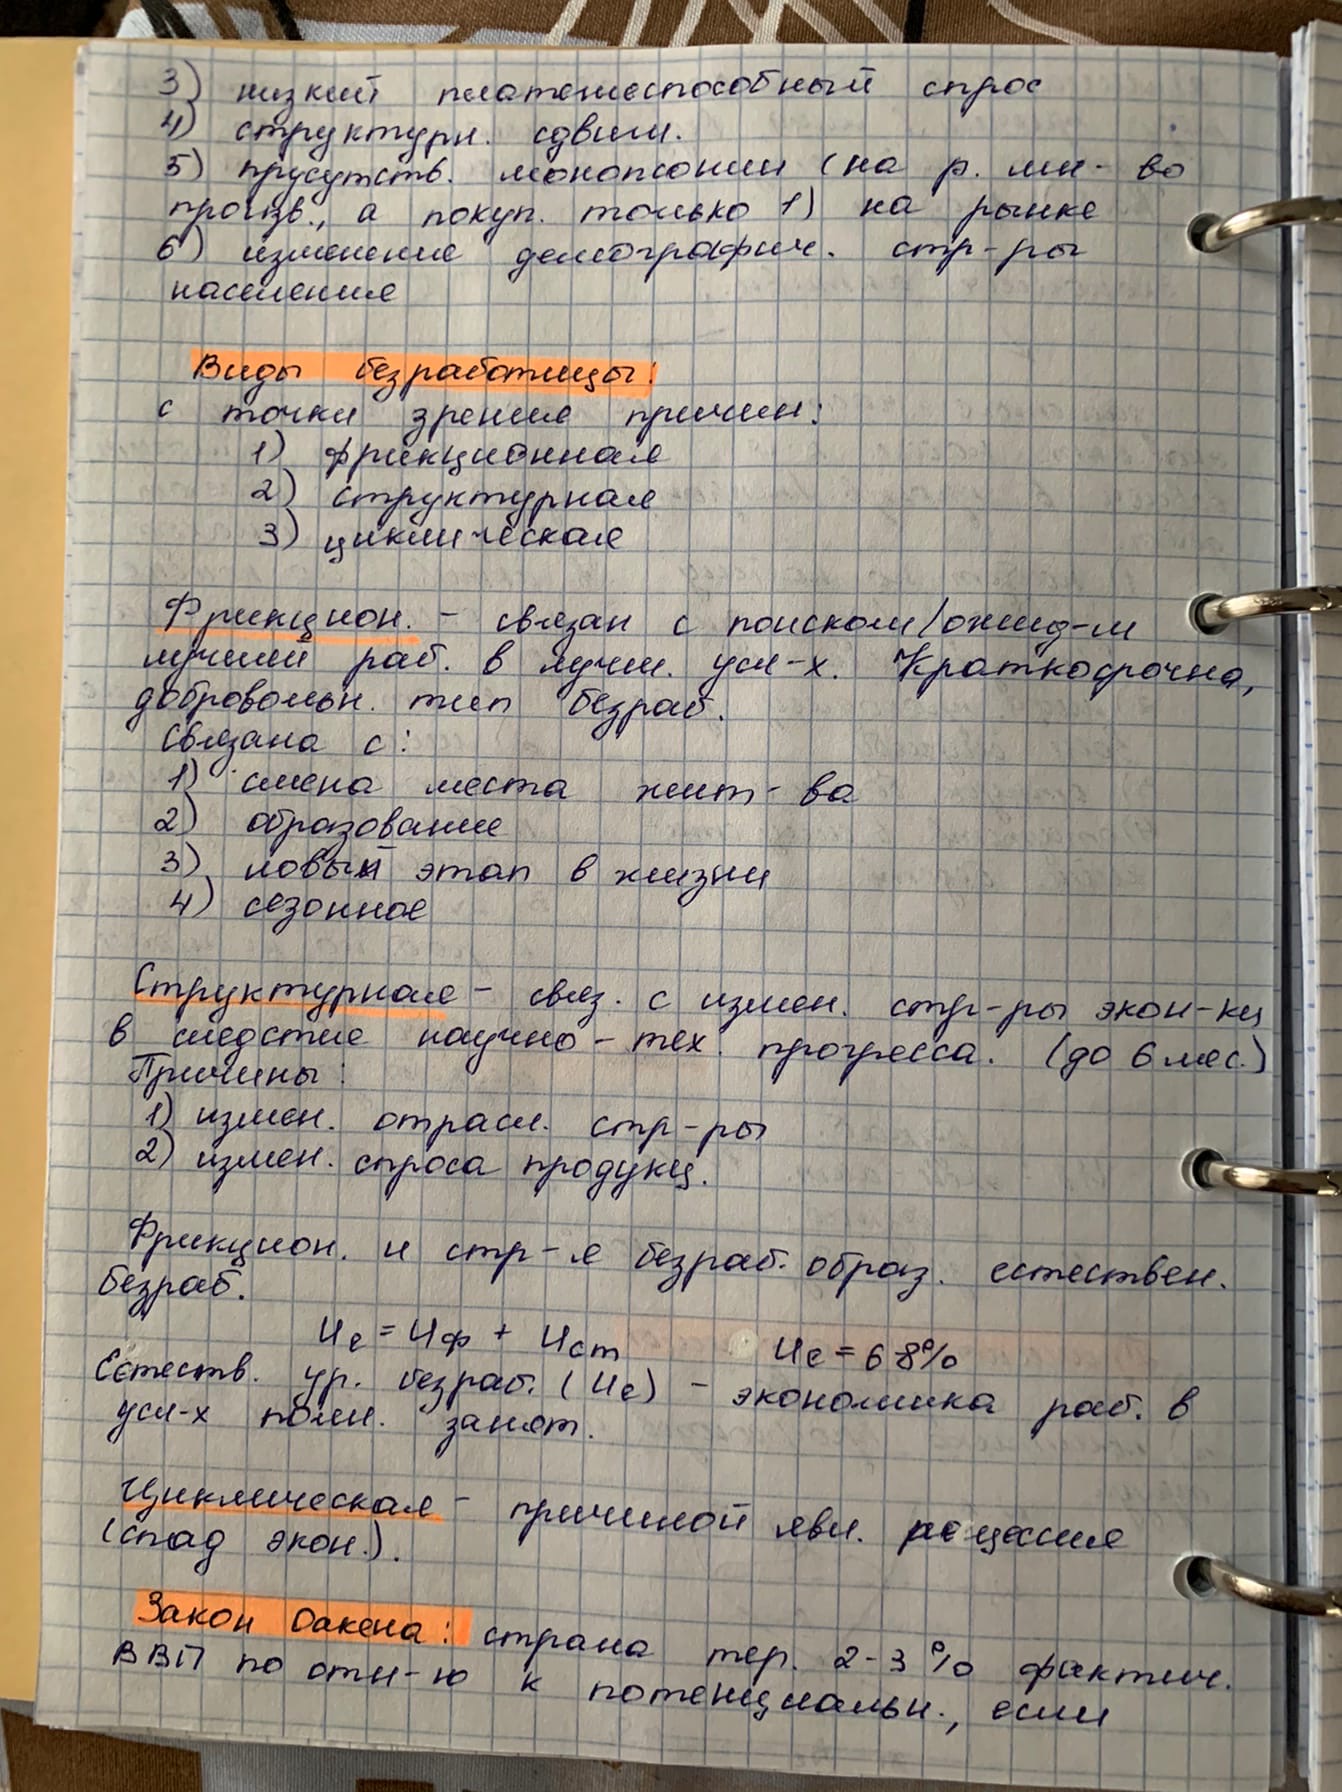 3) низкий платежеспособный спрос
4) структурн. сдвиги.
5) присутств. монопсонии (на р. мн-во
произв., а покуп. только 1) на рынке
6) изменение демографич. стр-ры
населения
Виды безработицы:
с точки зрения причин:
1) фрикционная
2) структурная
3) циклическая
Фрикцион. - связан с поиском/ожид-м
лучшей раб. в лучш. усл-х. Краткосрочна,
добровольн. тип безраб.
Связана с:
1) смена места жит-ва
2) образование
3) новый этап в жизни
4) сезонное
Структурная - связ. с измен. стр-ры экон-ки
в следствие научно-тех. прогресса. (до 6 мес.)
Причины:
1) измен. отрасл. стр-ры
2) измен. спроса продукц.
Фрикцион. и стр-я безраб. образ. естествен.
безраб.
Uе = Uф + Uст Uе = 6-8%
Естеств. ур. безраб. (Uе) - экономика раб. в
усл-х полн. занят.
Циклическая - причиной явл. рецессия
(спад экон.).
Закон Оакена: страна тер. 2-3% фактич.
ВВП по отн-ю к потенциальн., если